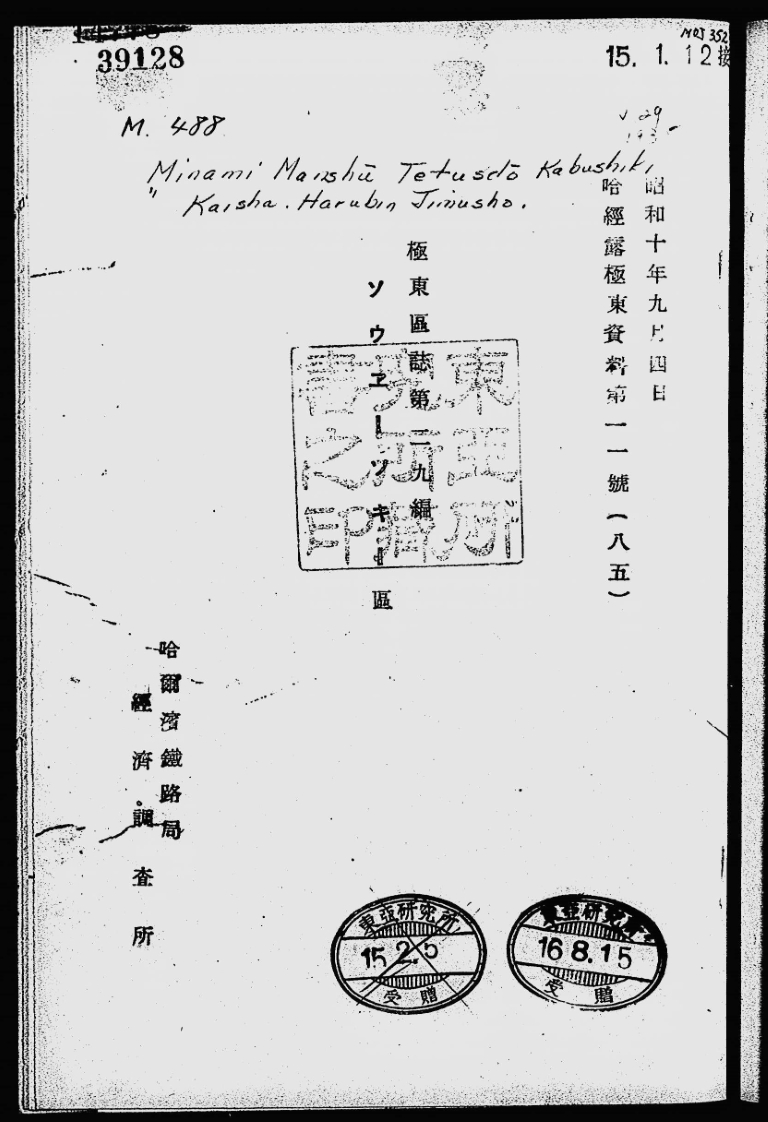 39128
MOJ 352
15. 1. 12 接
M. 488
Minami Manshū Tetusdō Kabushiki
" Kaisha. Harubin Jimusho.
昭和十年九月四日
哈經露極東資料第一一號(八五)
極東區誌第二九編
ソウヱーツキー區
東亜研究所藏書之印
哈爾濱鐵路局
經濟調査所
東亞研究所
15.2.5
受贈
東亞研究所
16 8.15
受贈